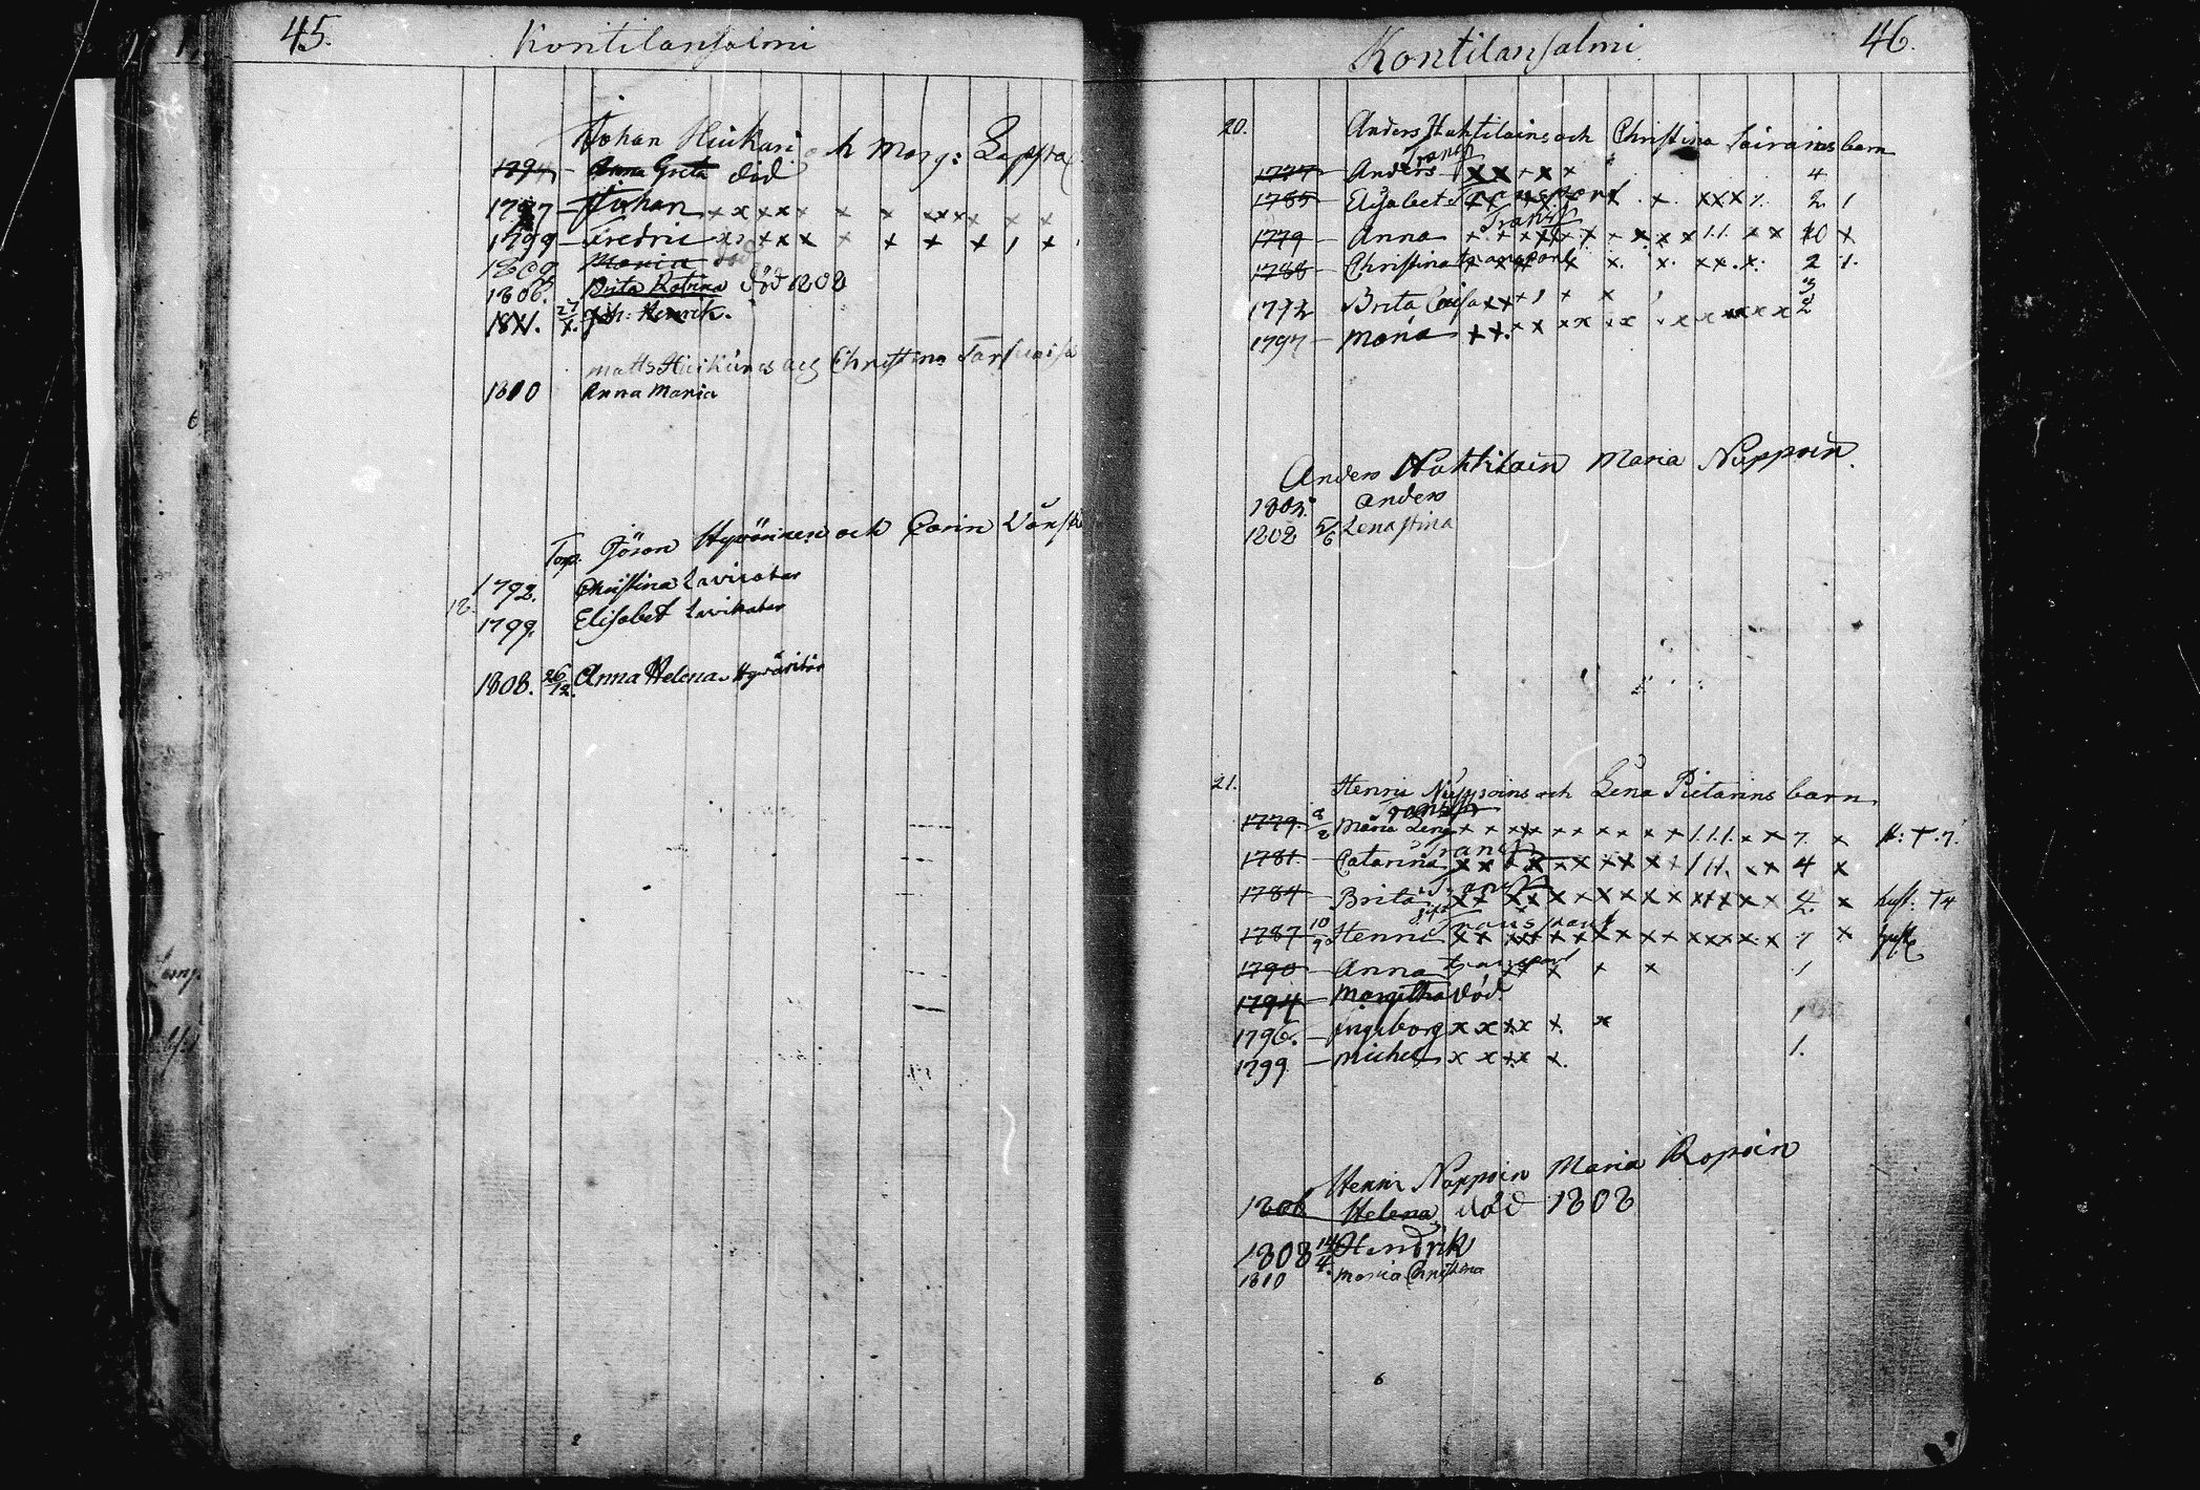 45. Kontilansalmi
Johan Huikari och Marg: Lappa
1794 - Anna Greta död
1797 - Johan x x x x x x x x x x x x x
1799 - Fredric x x x x x x x x x 1 x
1809 Maria död
1806. Brita Katrina död 1808
1811. 27/X. Joh: Henrik.
Matts Huikuins och Christina
1810 Anna Maria
Torp. Jöran Hyvöninen och Carin Vänsk
1792. Christina Lavicatar
18. 1799. Elisabet Lavikatar
1808. 26/12. Anna Helena
Kontilansalmi 46.
20. Anders Huhtilains och Christina Sairains barn
Transp
1777 - Anders x x x x x 4
1785 - Elisabet Transport x x x x 2 1
Transp
1779 - Anna x x x x x x x x x x 1.1. x x 10 x
1788 - Christina transport x x x x x x x 2 1.
3
1792 Brita Caisa x x x 1 x x
1797 - Maria x x x x x x x x x x x x x x 2
Anders Huhtilain Maria Nuppoin
1805. Anders
1808 5/6 Lenastina
21. Henric Nuppoins och Lena Pietarins barn
Transp
1779. 8/8 Maria Lena x x x x x x x x x x 1.1.1. x x 7. x
Transp
1781. - Catarina x x x x x x x x x x 1 1 1. x x 4 x
Transp
1784 - Brita x x x x x x x x x x x x x x x 4. x
gift Transport
1787 10/9 Henric x x x x x x x x x x x x x x x 7 x
1790 - Anna transport x x x x x 1
1794 - Margetha död.
1796. - Ingeborg x x x x x. x 1
1799 - Michel x x x x x. 1.
Henric Noppoin Maria Ropoin
1806 Helena död 1808
1808 14/4. Hendrik
1810 Maria Christina